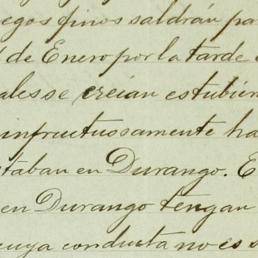 egos finos saldrán pa
de Enero por la tarde
ales se creian estubier
infructuosamente ha
taban en Durango. E
en Durango tengan
cuya conducta no es s